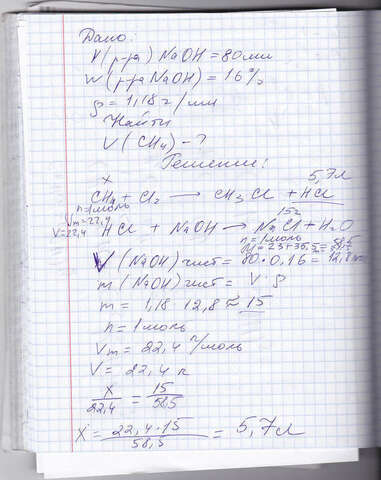 Дано:
V(р-ра) NaOH = 80 мл
W(р-ра NaOH) = 16%
ρ = 1,18 г/мл
Найти
V(CH4) - ?
Решение:
x 5,7л
CH4 + Cl2 → CH3Cl + HCl
n=1моль 15г
Vm=22,4 HCl + NaOH → NaCl + H2O
V=22,4 n=1моль
M=23+35,5=58,5
V(NaOH)чист = 80·0,16 = 12,8мл
m(NaOH)чист = V·ρ
m = 1,18·12,8 ≈ 15
n = 1моль
Vm = 22,4 л/моль
V = 22,4 л
x/22,4 = 15/58,5
X = 22,4·15/58,5 = 5,7л